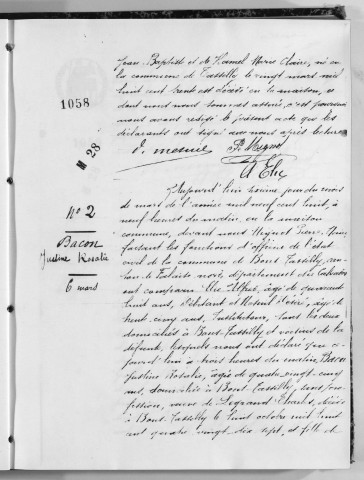 Jean Baptiste et de Hamel Marie Claire, né en
la commune de Tassilly, le vingt mars mil
huit cent trente est décédé en sa maison, et
dont nous nous sommes assuré, c'est pourquoi
nous avons rédigé le présent acte que les
déclarants ont signé avec nous après lecture
1058
N 28
A Elie
N° 2
Bacon
Justine Rosalie
6 mars
Aujourd'hui sixième jour du mois
de mars de l'année mil neuf cent huit, à
neuf heures du matin, en la maison
commune, devant nous Pierre,
faisant les fonctions d'officier de l'état
civil de la commune de Bons Tassilly, can-
ton de Falaise nord, département du Calvados
ont comparu Elie Alfred, âgé de quarante
huit ans, et Mesnil Désiré, âgé de
trente cinq ans, tous les deux
domiciliés à Bons-Tassilly et voisins de la
défunte, lesquels nous ont déclaré que ce
jourd'hui à trois heures du matin, Bacon
Justine Rosalie, âgée de quatre vingt cinq
ans, domiciliée à Bons Tassilly, sans pro-
fession, veuve de Legrand Charles, décédé
à Bons-Tassilly le huit octobre mil huit
cent quatre vingt dix sept, et fille de